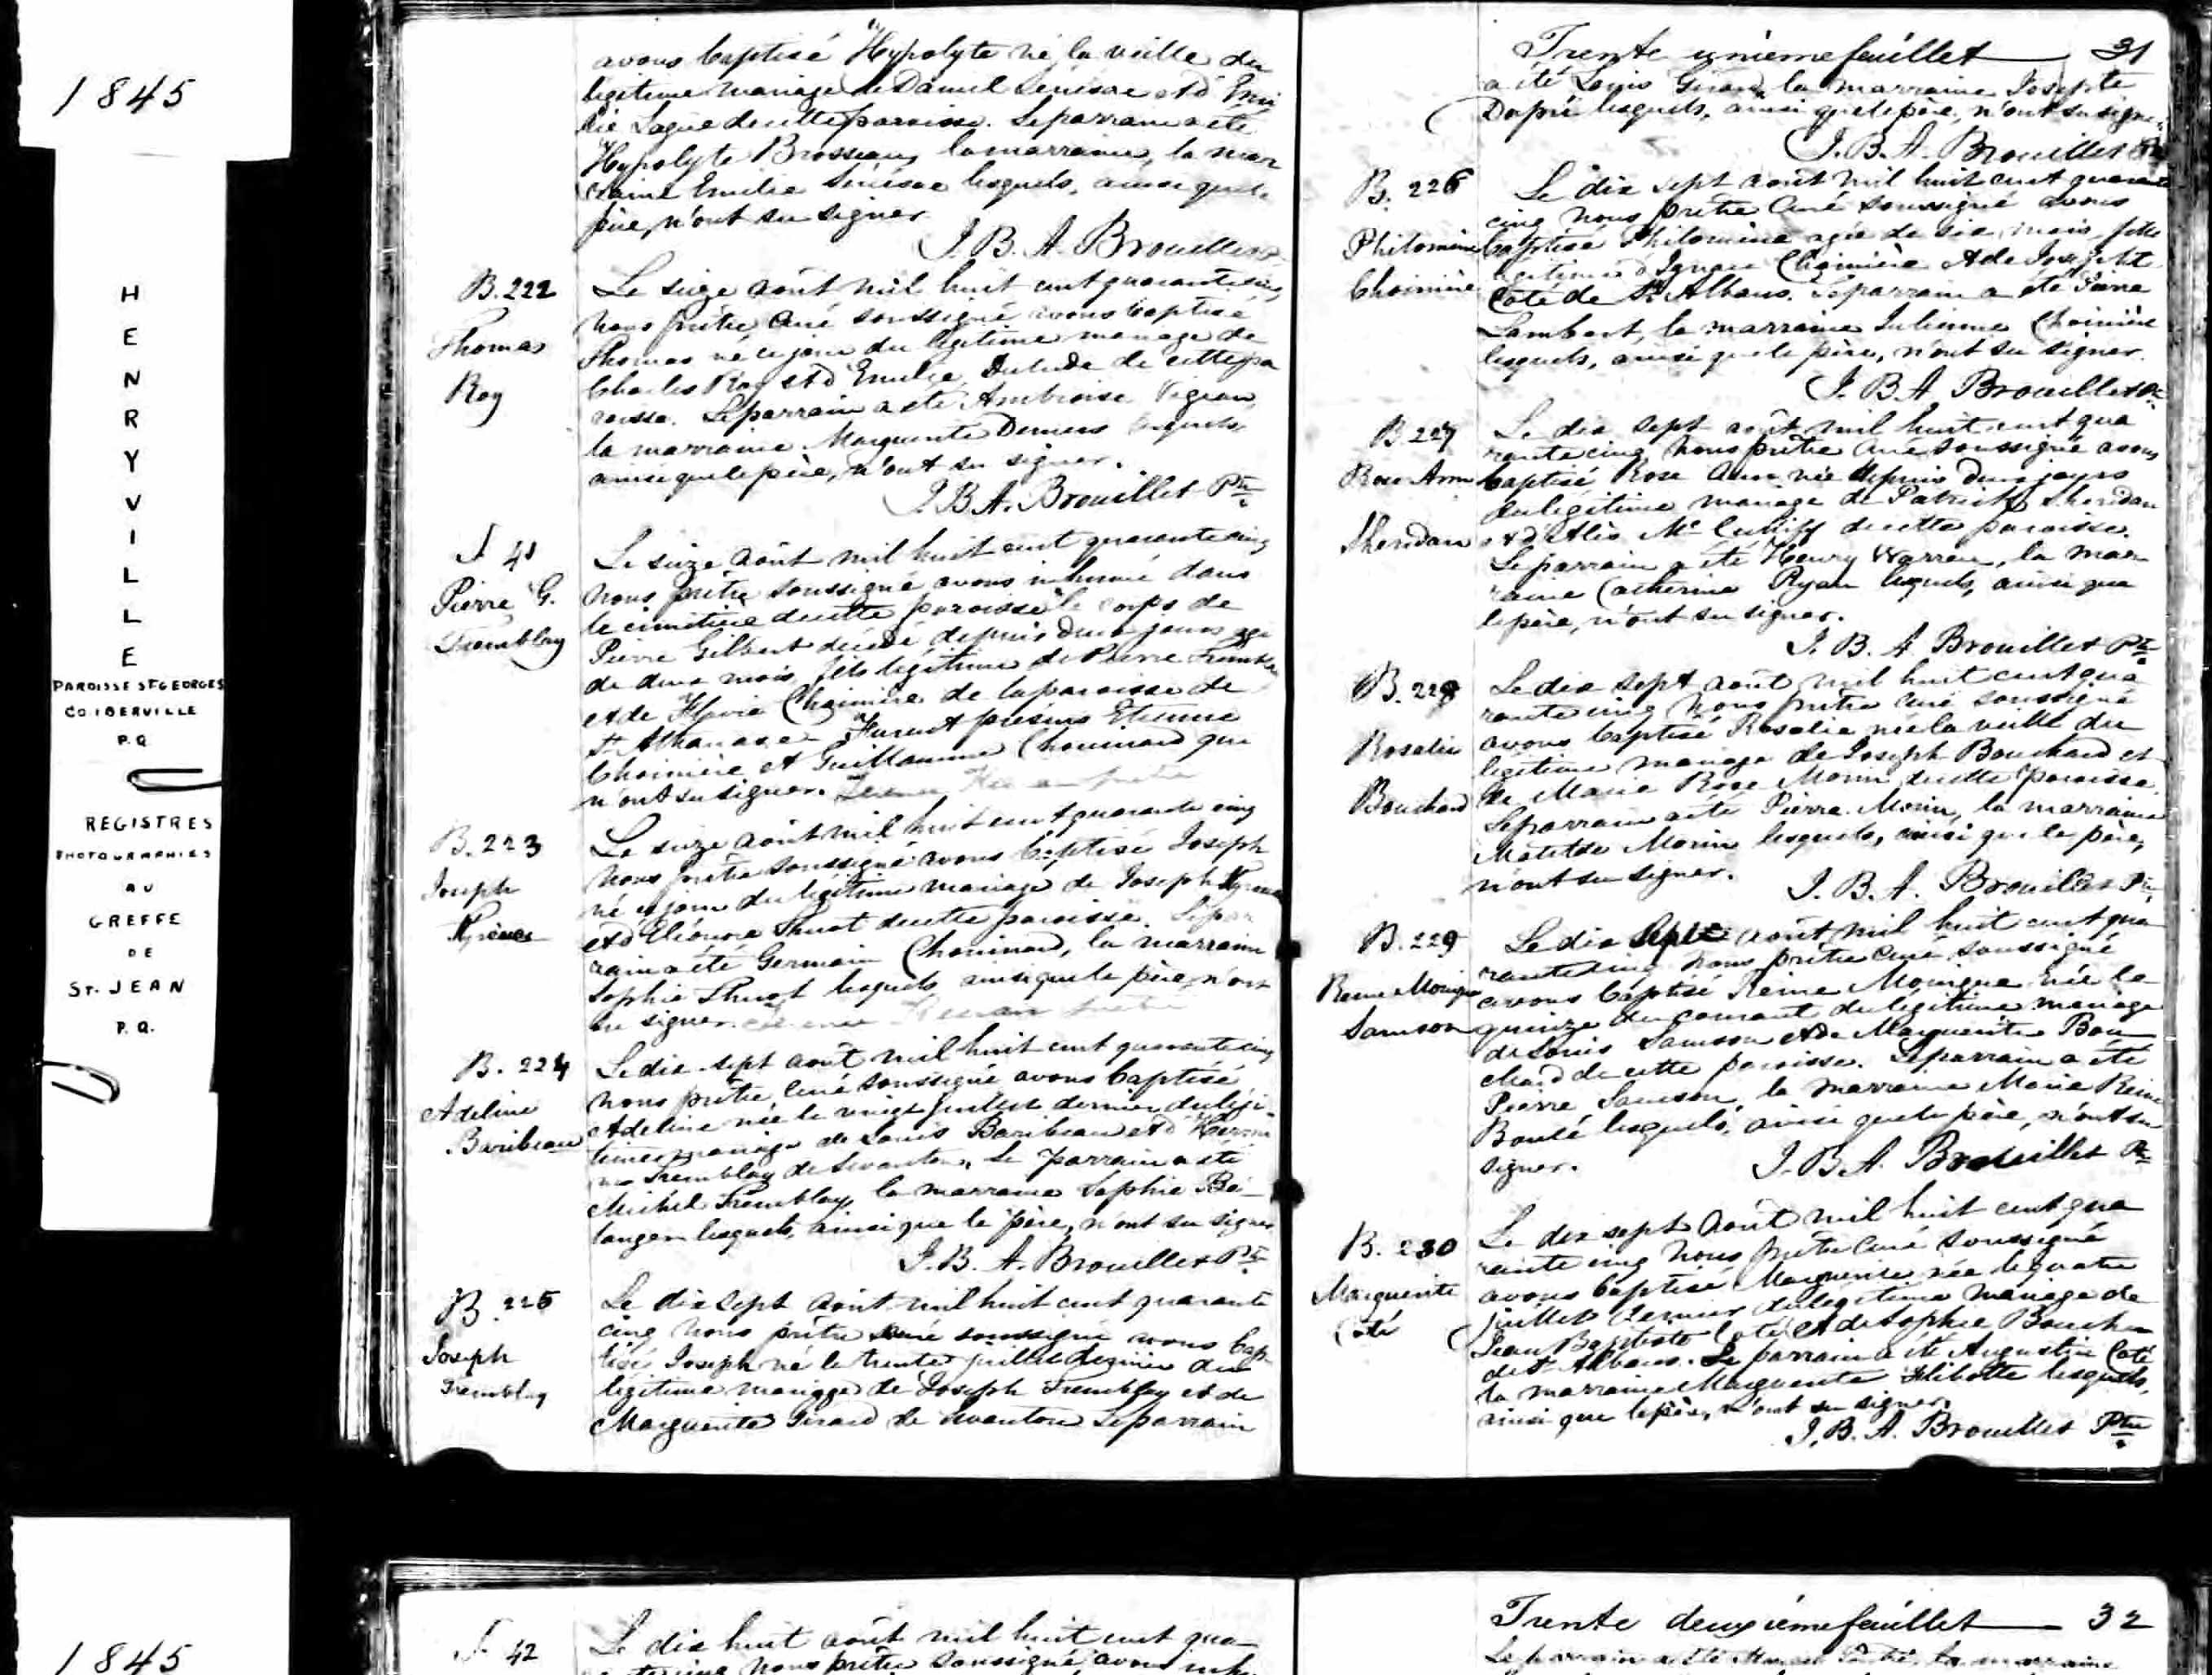 1845
HENRYVILLE
PAROISSE ST GEORGES
CO. IBERVILLE
P.Q.
REGISTRES
PHOTOGRAPHIES
AU
GREFFE
DE
ST. JEAN
P.Q.
avons baptisé Hypolyte né la veille du
légitime mariage de Daniel Sénésac et d'Emi
lie Lague de cette paroisse. Le parrain a été
Hypolyte Brosseau, la marraine, la mar
raine Emilie Sénésac lesquels, ainsi que le
père, n'ont su signer
J. B. A. Brouillet
B. 222
Thomas
Roy
Le seize août mil huit cent quarante cinq
nous prêtre Curé soussigné avons baptisé
Thomas né ce jour du légitime mariage de
Charles Roy et d'Emilie Dutude de cette pa
roisse. Le parrain a été Ambroise
la marraine Marguerite Demers lesquels
ainsi que le père, n'ont su signer.
J. B. A. Brouillet Ptre
S 41
Pierre G.
Tremblay
Le seize août mil huit cent quarante cinq
nous prêtre soussigné avons inhumé dans
le cimetière de cette paroisse le corps de
Pierre Gilbert décédé depuis deux jours agé
de deux mois, fils légitime de Pierre Tremblay
et de Flavie Choinière de la paroisse de
St Athanase. Furent présens Etienne
Choinière et Guillaume Chouinard qui
n'ont su signer.
B. 223
Joseph
Le seize août mil huit cent quarante cinq
nous prêtre soussigné avons baptisé Joseph
né ce jour du légitime mariage de Joseph
et d'Eléonore Thuot de cette paroisse. Le par
rain a été Germain Chouinard, la marraine
Sophie Thuot lesquels ainsi que le père, n'ont
su signer.
B. 224
Adeline
Baribeau
Le dix sept août mil huit cent quarante cinq
nous prêtre Curé soussigné avons baptisé
Adeline née le vingt juillet dernier du légi-
time mariage de Louis Baribeau et d'
Tremblay de Swanton. Le parrain a été
Michel Tremblay, la marraine Sophie Bé-
langer lesquels, ainsi que le père, n'ont su signer
J. B. A. Brouillet Ptre
B. 225
Joseph
Tremblay
Le dix sept août mil huit cent quarante
cinq nous prêtre curé soussigné avons bap
tisé Joseph né le trente juillet dernier du
légitime mariage de Joseph Tremblay et de
Marguerite Girard de Swanton Le parrain
Trente unième feuillet 31
a été Louis Girard, la marraine Josepte
Dupré lesquels, ainsi que le père, n'ont su signer.
J. B. A. Brouillet Ptre
B. 226
Philomène
Choinière
Le dix sept août mil huit cent quarante
cinq nous prêtre Curé soussigné avons
baptisé Philomène agée de six mois, fille
légitime d'Ignace Choinière et de Josephte
Coté de St Albans. Le parrain a été Pierre
Lambert, la marraine Julienne Choinière
lesquels, ainsi que le père, n'ont su signer.
J. B. A. Brouillet Ptre
B. 227
Rose Ann
Sheridan
Le dix sept août mil huit cent qua
rante cinq nous prêtre Curé soussigné avons
baptisé Rose Ann née depuis deux jours
du légitime mariage de Patrick Sheridan
et d'Alis Mc de cette paroisse.
Le parrain a été Henry Warren, la mar
raine Catherine Ryan lesquels, ainsi que
le père, n'ont su signer.
J. B. A. Brouillet Ptre
B. 228
Rosalie
Bouchard
Le dix sept août mil huit cent qua
rante cinq nous prêtre Curé soussigné
avons baptisé Rosalie née la veille du
légitime mariage de Joseph Bouchard et
de Marie Rose Morin de cette paroisse.
Le parrain a été Pierre Morin, la marraine
Matilde Morin lesquels, ainsi que le père,
n'ont su signer.
J. B. A. Brouillet Ptre
B. 229
Reine Monique
Samson
Le dix sept août mil huit cent qua
rante cinq nous prêtre Curé soussigné
avons baptisé Reine Monique née le
quinze du courant du légitime mariage
de Louis Samson et de Marguerite Bou
chard de cette paroisse. Le parrain a été
Pierre Samson, la marraine Marie Reine
Boulé lesquels, ainsi que le père, n'ont su
signer.
J. B. A. Brouillet Ptre
B. 230
Marguerite
Coté
Le dix sept Août mil huit cent qua
rante cinq nous prêtre Curé soussigné
avons baptisé Marguerite née le quatre
juillet dernier du légitime mariage de
Jean Baptiste Coté et de Sophie Boucher
de St Albans. Le parrain a été Augustin Coté
la marraine Marguerite lesquels,
ainsi que le père, n'ont su signer.
J. B. A. Brouillet Ptre
1845
S 42
Le dix huit août mil huit cent qua
rante cinq nous prêtre soussigné avons
Trente deuxième feuillet 32
Le parrain a été la marraine